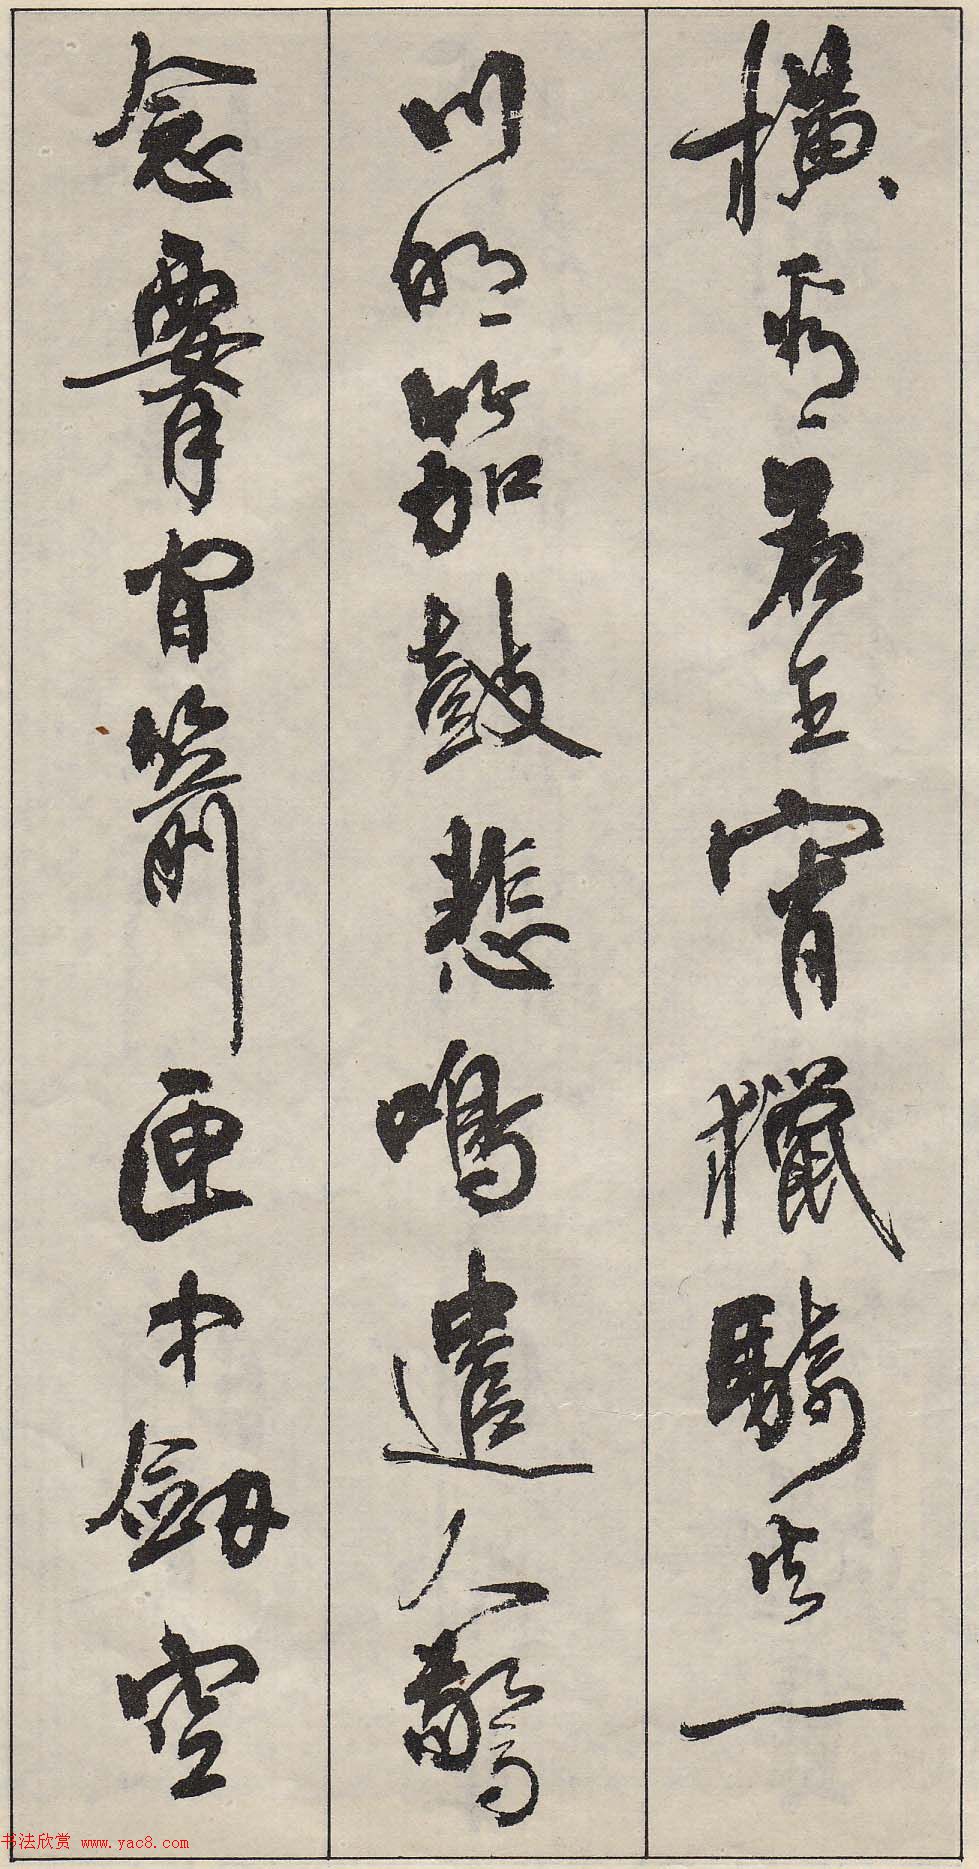 橫看名王宵獵騎火一
川明笳鼓悲鳴遣人驚
念腰間箭匣中劍空
书法欣赏 www.yac8.com